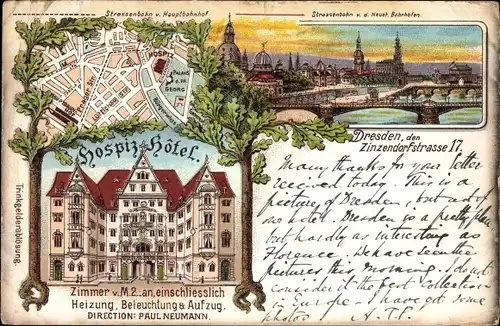 Strassenbahn v. Hauptbahnhof
Strassenbahn v. d. Neust. Bahnhöfen.
HOSPIZ
PALAIS
d. Pr.
GEORG
Dresden, den
Zinzendorfstrasse 17.
Hospiz-Hôtel.
Trinkgelderablösung.
Many thanks for your letter
received today. This is a
picture of Dresden, but not of
hotel. Dresden is a pretty place
but hardly as interesting as
Florence. We have seen the
pictures this morning. I don't
consider it the best collection
in Europe – I have got some
photos. A.T.F.
Zimmer v. M. 2.- an, einschliesslich
Heizung, Beleuchtung & Aufzug.
DIRECTION: PAUL NEUMANN.